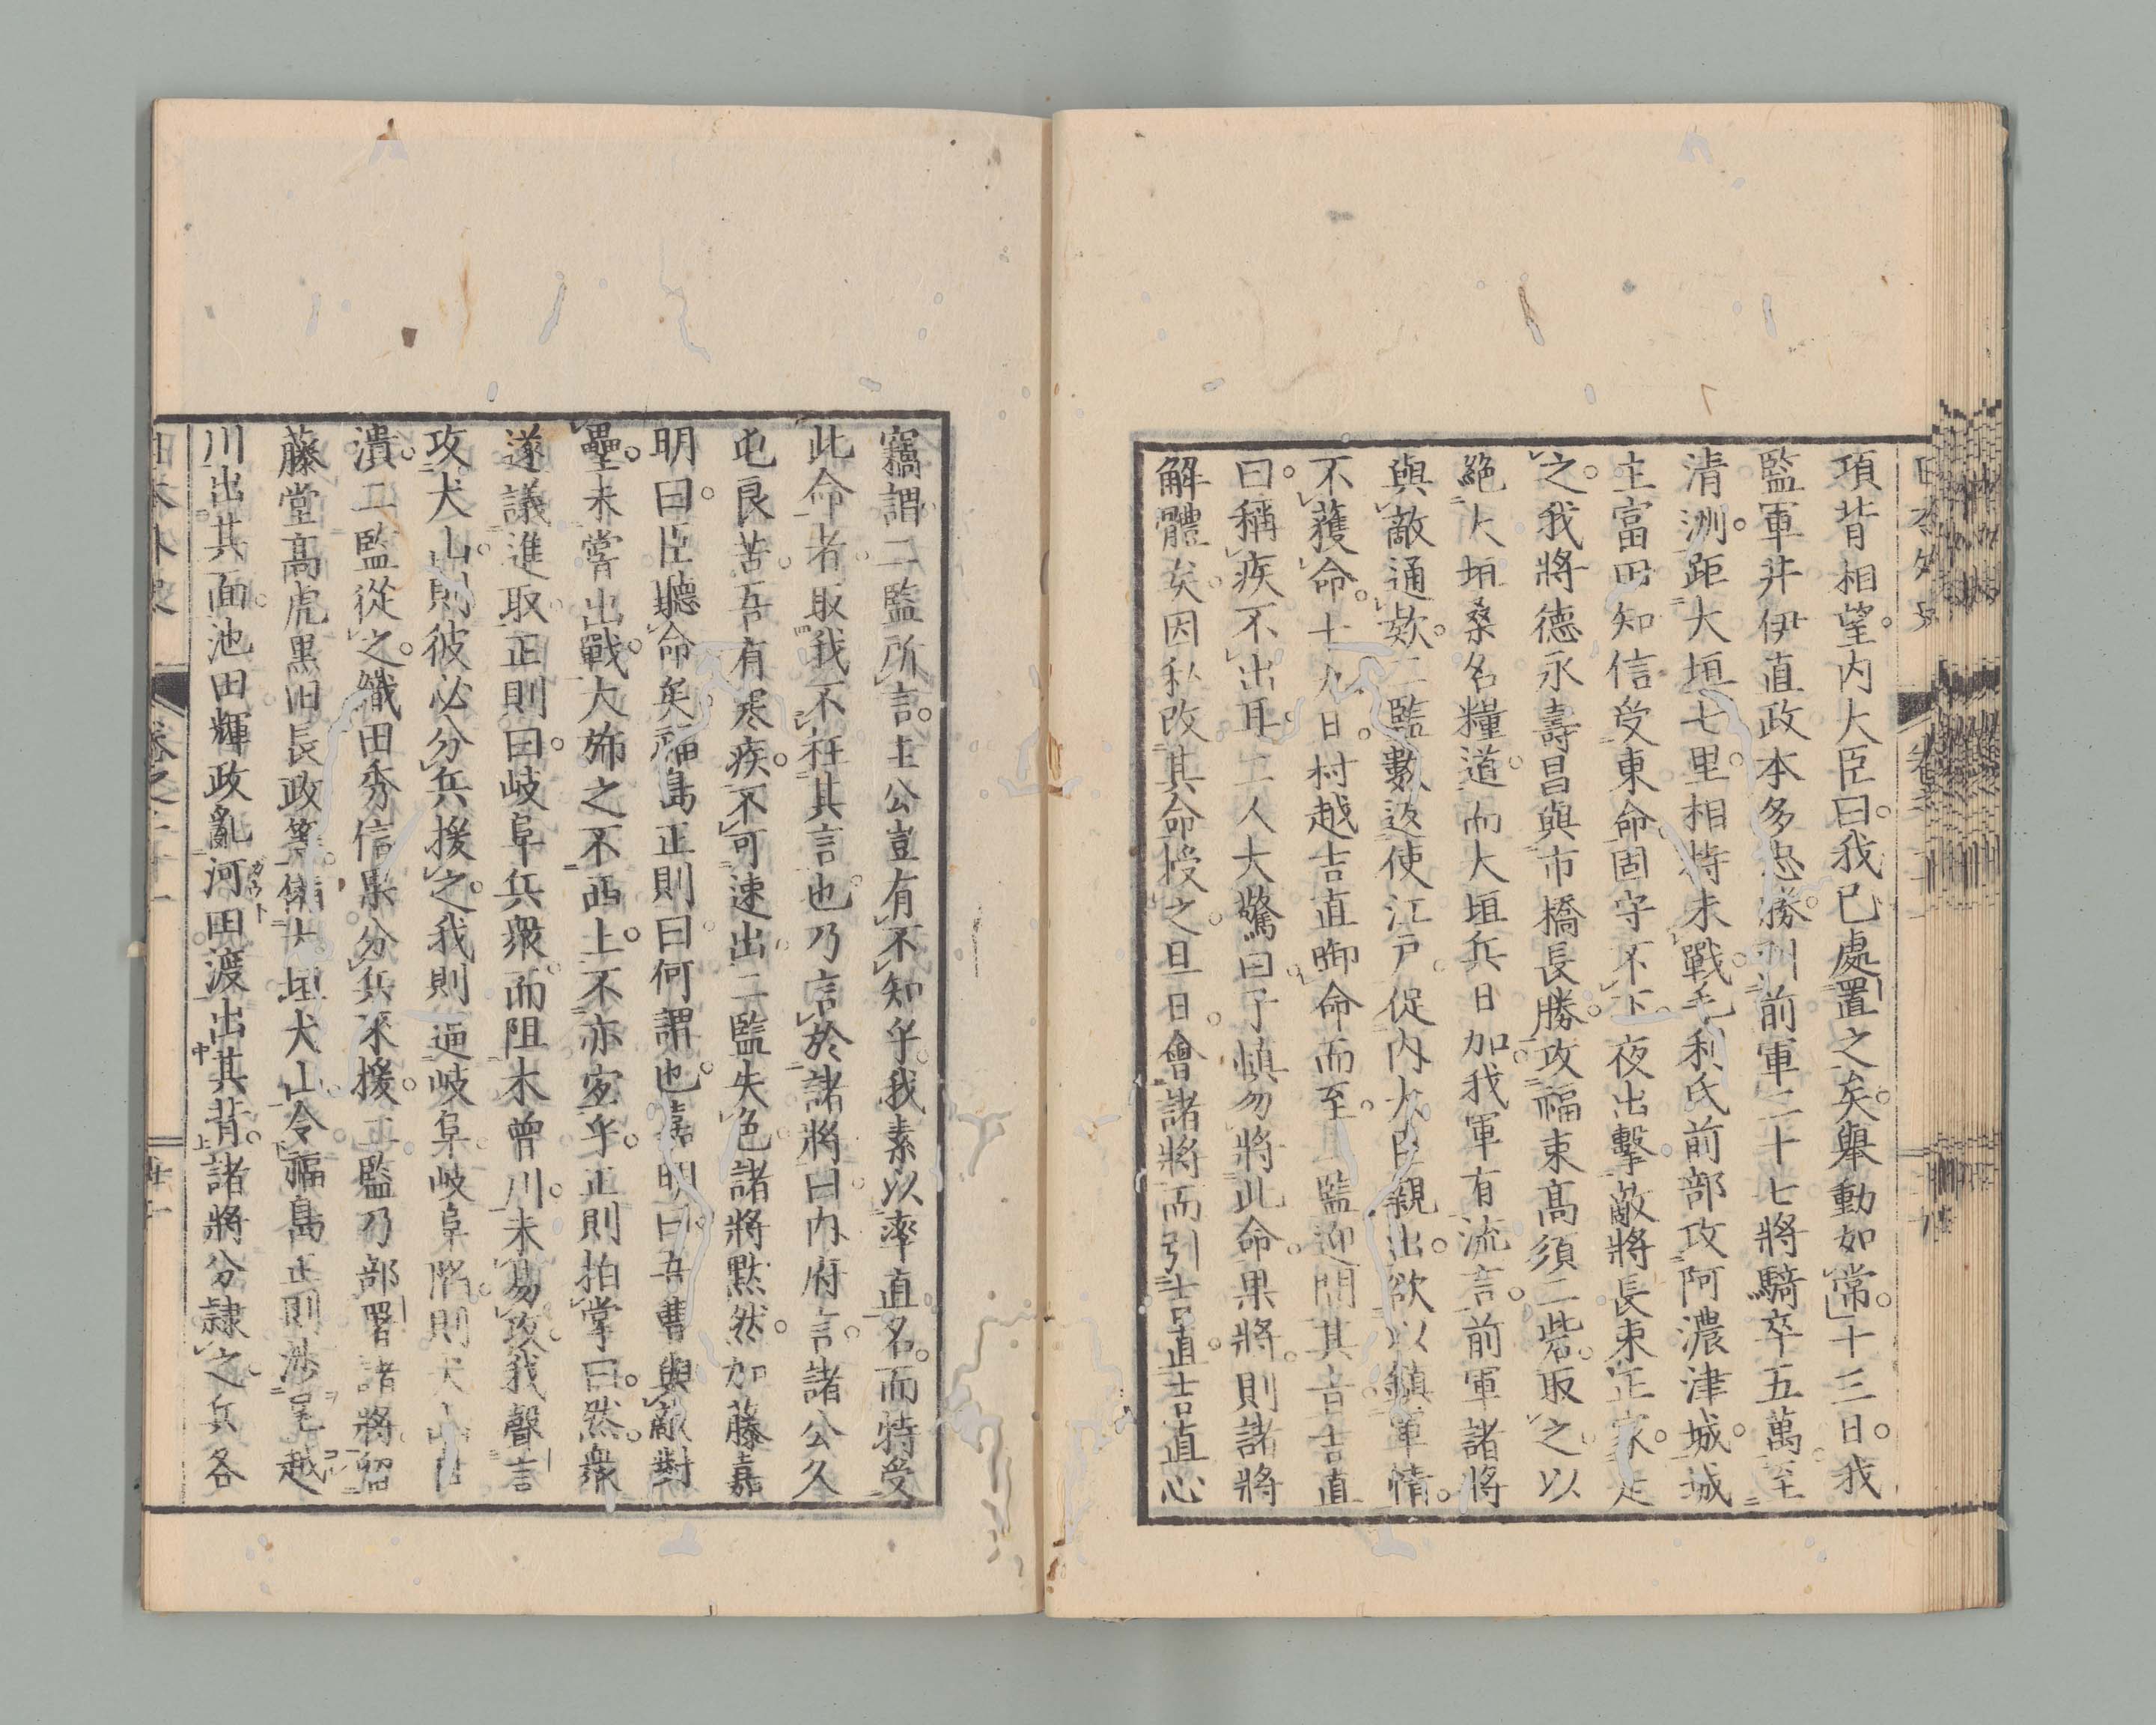 項背相望。内大臣曰。我已處置之矣。舉動如常。十三日。我
監軍井伊直政本多忠勝。以前軍二十七將騎卒五萬。至
清洲。距大垣七里。相持未戰。毛利氏前部攻阿濃津城。城
主富田知信受東命。固守不下。夜出擊敵將長束正家。走
之。我將德永壽昌與市橋長勝。攻福束高須二砦。取之。以
絶大垣桑名糧道。而大垣兵日加。我軍有流言。前軍諸將
與敵通欵。二監數返使江戸。促内大臣親出。欲以鎮軍情。
不獲命。十九日。村越吉直啣命而至。二監迎問其言。吉直
曰。稱疾不出耳。二人大驚曰。子愼勿將此命。果將。則諸將
解體矣。因私改其命授之。旦日。會諸將而引吉直。吉直心
竊謂二監所言。主公豈有不知乎。我素以率直名。而特受
此命者。取我不枉其言也。乃言於諸將曰。内府言。諸公久
屯良苦。吾有寒疾。不可速出。二監失色。諸將默然。加藤嘉
明曰。臣聽命矣。福島正則曰。何謂也。嘉明曰。吾曹與敵對
壘。未嘗出戰。大旆之不西上。不亦宜乎。正則拍掌曰。然。衆
遂議進取。正則曰。岐阜兵衆。而阻木曾川。未易攻。我聲言
攻犬山。則彼必分兵援之。我則逼岐阜。岐阜陷。則犬山自
潰。二監從之。織田秀信果分兵來援。二監乃部署諸將。留
藤堂高虎黒田長政等。備大垣犬山。令福島正則渉尾越
川出其面。池田輝政亂河田渡出其背。諸將分隷之。兵各